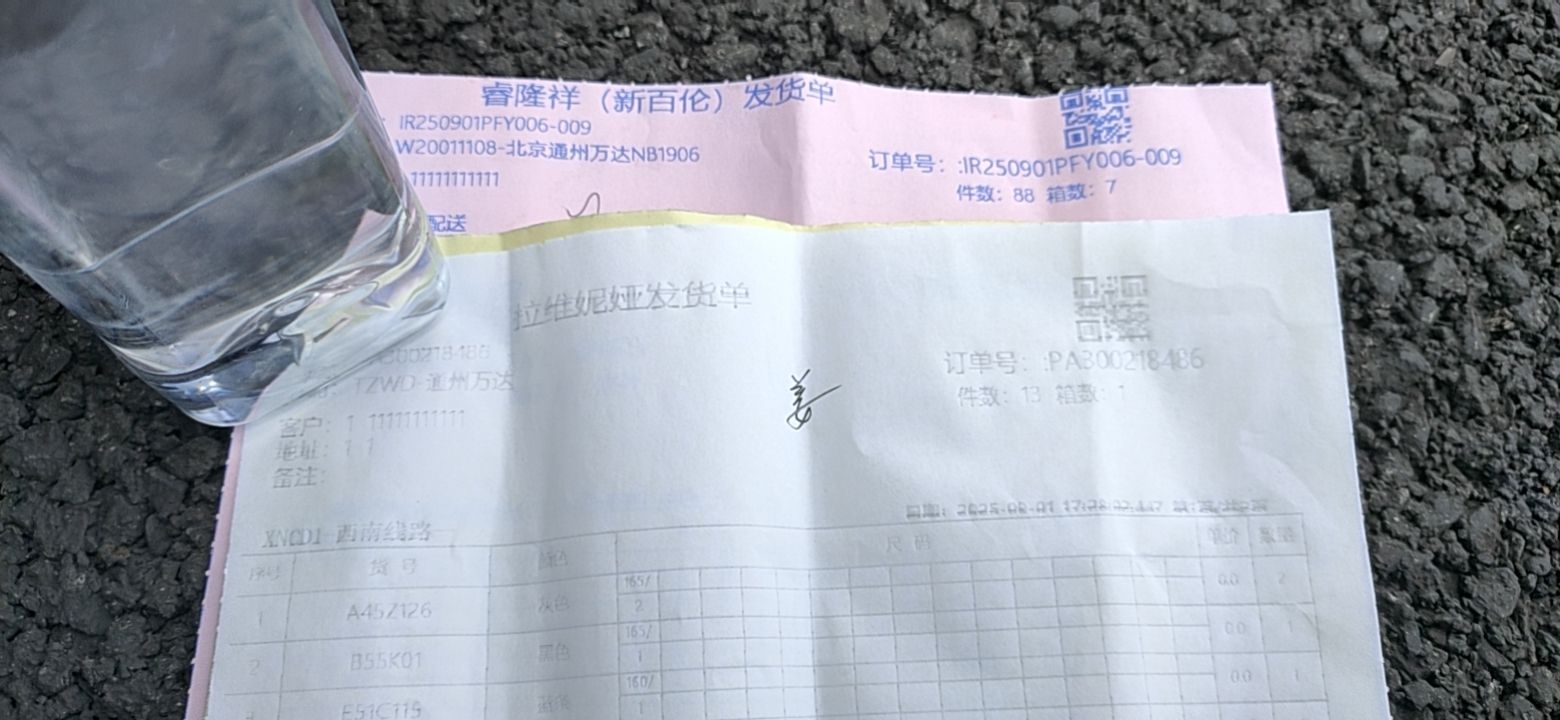 睿隆祥（新百伦）发货单
: IR250901PFY006-009
W20011108-北京通州万达NB1906
订单号: :IR250901PFY006-009
11111111111
件数: 88 箱数: 7
配送
拉维妮娅发货单
A300218486
订单号: :PA300218486
TZWD-通州万达
件数: 13 箱数: 1
客户: 1 11111111111
地址: 1 1
备注:
日期: 2025-09-01
XNCD1 西南线路
序号 货号 颜色 尺码 单价 数量
165/
1 A45Z126 灰色 2 0.0 2
165/
2 B55K01 黑色 1 0.0 1
160/
3 E51C119 蓝条 1 0.0 1
姜